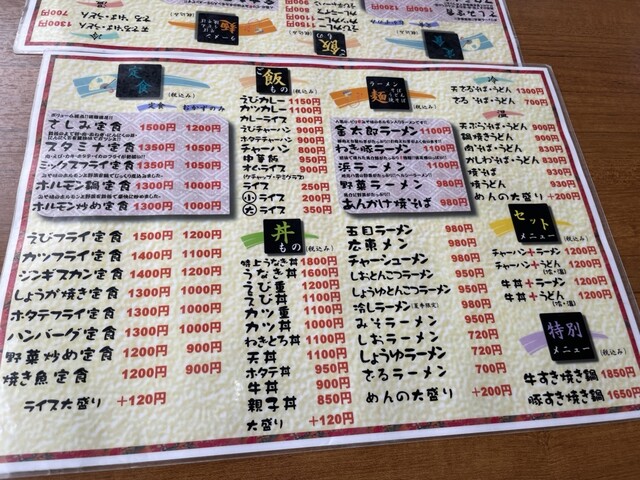 定食
(税込み)
定食 おかずのみ
さしみ定食 1500円 1200円
スタミナ定食 1350円 1050円
ミックスフライ定食 1350円 1050円
ホルモン鍋定食 1300円 1000円
ホルモン炒め定食 1300円 1000円
えびフライ定食 1500円 1200円
カツフライ定食 1400円 1100円
ジンギスカン定食 1400円 1100円
しょうが焼き定食 1300円 1000円
ホタテフライ定食 1300円 1000円
ハンバーグ定食 1300円 1000円
野菜炒め定食 1200円 900円
焼き魚定食 1200円 900円
ライス大盛り +120円
ご飯もの
(税込み)
えびカレー 1150円
カツカレー 1100円
カレーライス 800円
えびチャーハン 900円
ホタテチャーハン 900円
チャーハン 800円
中華飯 950円
オムライス 900円
(ケチャップ・デミグラス)
ライス 250円
小ライス 200円
大ライス 350円
丼もの
(税込み)
特上うなぎ丼 1800円
うなぎ丼 1600円
えび重 1200円
えび丼 1100円
カツ重 1100円
カツ丼 1000円
わきとろ丼 1100円
天丼 1100円
ホタテ丼 950円
牛丼 900円
親子丼 850円
大盛り +120円
ラーメン
うどん
焼そば
麺
(税込み)
金太郎ラーメン 1100円
わき・豚ラーメン 1100円
浜ラーメン 1100円
野菜ラーメン 980円
あんかけ焼そば 980円
五目ラーメン 980円
広東メン 980円
チャーシューメン 980円
しおとんこつラーメン 950円
しょうゆとんこつラーメン 950円
冷しラーメン(夏季限定) 980円
みそラーメン 950円
しおラーメン 720円
しょうゆラーメン 720円
ざるラーメン 700円
めんの大盛り +200円
冷 (税込み)
天ざるそば・うどん 1300円
ざるそば・うどん 700円
温 (税込み)
天ぷらそば・うどん 900円
鍋焼きうどん
肉そば・うどん
かしわそば・うどん
焼そば
焼うどん
めんの大盛り +200円
セットメニュー
(税込み)
チャーハン+ラーメン 1200円
チャーハン+うどん 1200円
(冷・温)
牛丼+ラーメン 1200円
牛丼+うどん 1200円
(冷・温)
特別メニュー
(税込み)
牛すき焼き鍋 1850円
豚すき焼き鍋 1650円